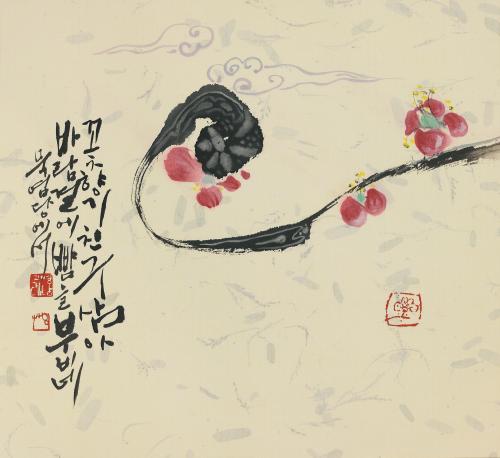 꼬ᄎ향기 친구 삼아
바람결에 뺨을 부비네
묵염당에서